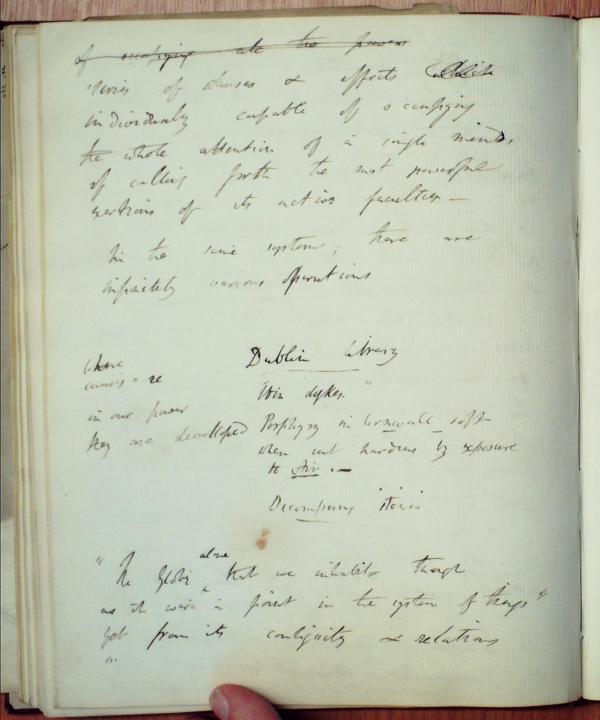 of occupying all the powers
series of causes & effects which
individually capable of occupying
the whole attention of a single mind
of calling forth the most powerful
exertions of its active faculties —
In the same system; there are
infinitely various operations
Dublin library
dykes.
where
causes are
in our power
they are developed
Porphyry in Cornwall soft
when cut hardens by exposure
to Air. —
Decomposing stones
"The Globe alone that we inhabit though
as it were a point in the system of things"
yet from its contiguity & relations
"